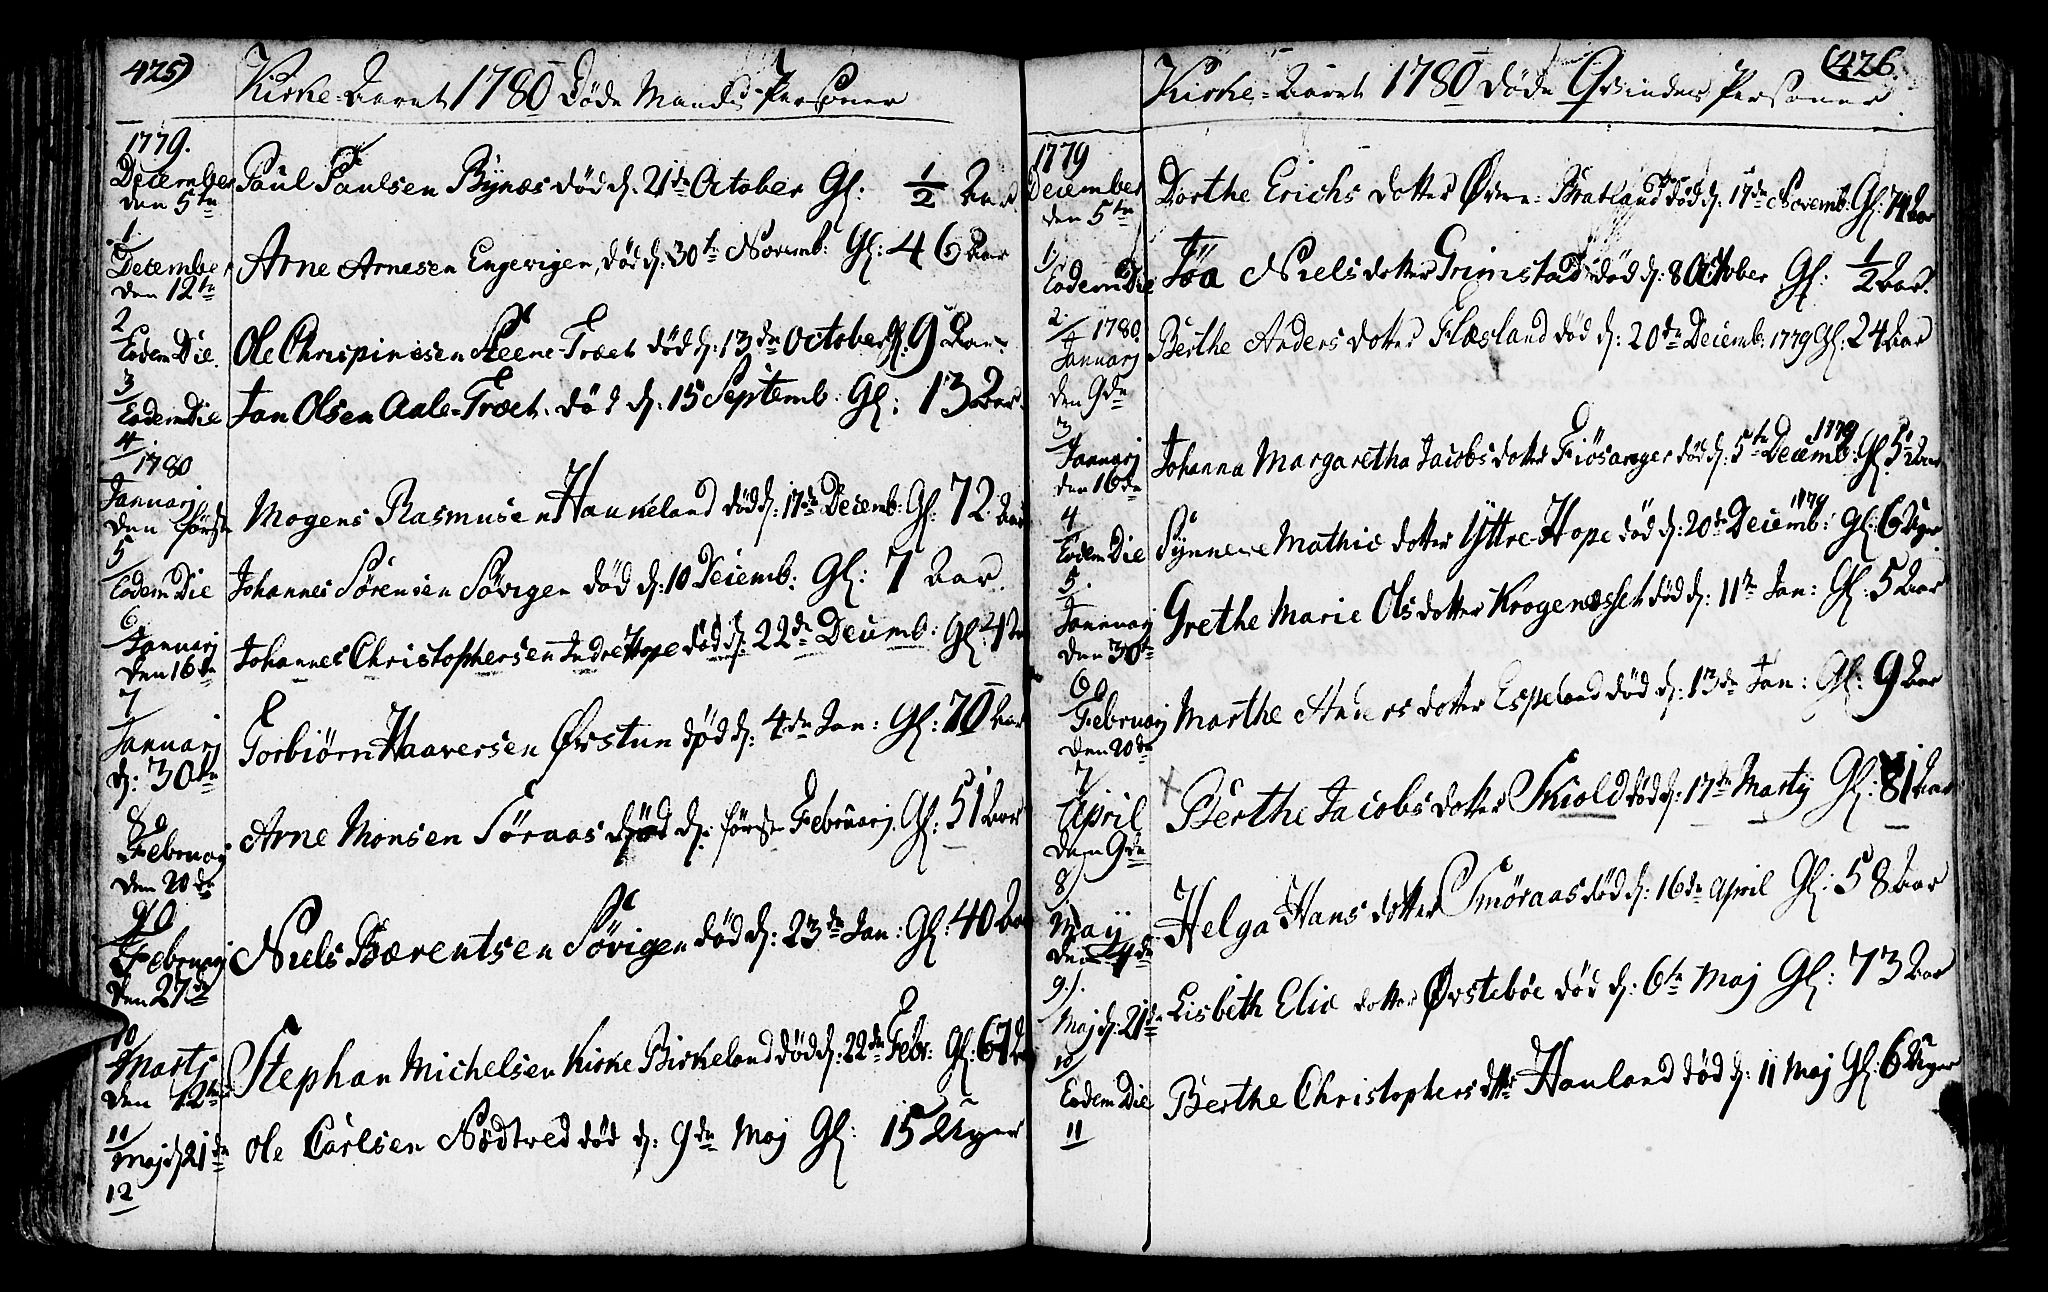 425)
Kirke-Aaret 1780 Døde Mands-Personer
1779.
December den 5te
1. Paul Paulsen Bynæs død d: 21de October Gl: 1/2 Aar.
December den 12te
2 Arne Arnesen Engevigen, død d: 30te Novemb: Gl: 46 Aar
Eodem Die.
3 Ole Chrispinesen Steene-Træet død d: 13de October Gl: 9 Aar.
Eodem Die
4 Jan Olsen Aale-Træet, død d: 15 Septemb: Gl: 13 Aar.
1780
Januarj den første
5 Mogens Rasmusen Haukeland død d: 17de Decemb: Gl: 72 Aar
Eodem Die
6 Johannes Sørensen Søvigen død d: 10 Decemb: Gl: 7 Aar.
Januarj den 16de
7 Johannes Christophersen Indre Hope død d: 22de Decemb: Gl:
Januarj d: 30te
8 Torbiørn Haaversen Øvstun død d: 4de Jan: Gl: 70 Aar
Februarj den 20de
9 Arne Monsen Søraas død d: første Februarj Gl: 51 Aar
Februarj den 27de
10 Niels Bærentsen Søvigen død d: 23de Jan: Gl: 40 Aar
Martj den 12te
11 Stephan Michelsen Kirke Birkeland død d: 22de Febr: Gl: 67
Maj d: 21de
12 Ole Carlsen Nødtved død d: 9de Maj Gl: 15 Uger
(426.
Kirke-Aaret 1780 Døde Qvindes Personer
1779
December den 5te
1. Dorthe Erichs dotter Øvre-Bratland død d: 17de Novemb: Gl: 74 Aar
Eodem Die
2. Jøa Niels dotter Grimstad død d: 8 October Gl: 1/2 Aar.
1780
Januarj den 9de
3 Berthe Anders dotter Flæsland død d: 20de Decemb: 1779 Gl: 24 Aar
Januarj den 16de
4 Johanna Margaretha Jacobs dotter Fiøsanger død d: 5te Decemb: 1779 Gl: 5 1/2 Aar
Eodem Die
5. Synneve Mathis dotter Yttre-Hope død d: 20de Decemb: 1779 Gl: 6 Uger
Januarj den 30te
6 Grethe Marie Ols dotter Krogenæsset død d: 11te Jan: Gl: 5 Aar
Februarj den 20de
7 Marthe Anders dotter Espeland død d: 13de Jan: Gl: 9 Aar
April den 9de
8 Berthe Jacobs dotter Skiold død d: 17de Martij Gl: 81 Aar
May den 4de
9.). Helga Hans dotter Smøraas død d: 16de April Gl: 58 Aar
Maj d: 21de
10 Lisbeth Elis dotter Øvstebøe død d: 6te Maj Gl: 73 Aar
Eodem Die
11 Berthe Christophers dttr Hauland død d: 11 Maj Gl: 6 Uger